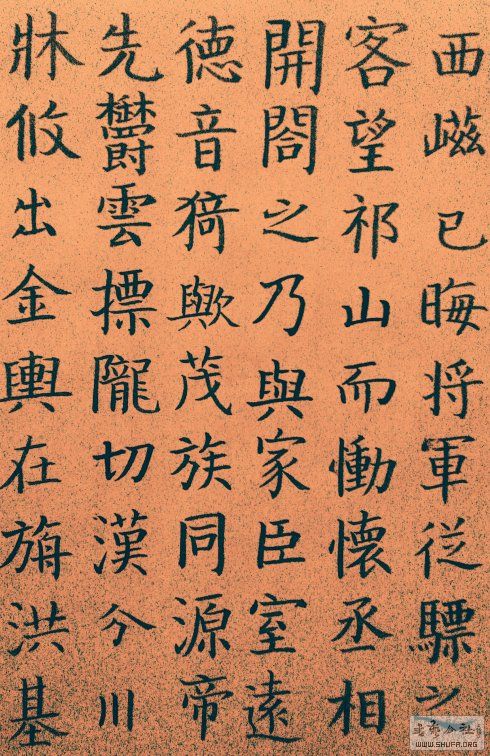 西嵫已晦将軍従驃之
客望祁山而慟懷丞相
開閤之乃與家臣室遠
德音猗歟茂族同源帝
先鬱雲摽隴切漢分川
牀攸出金輿在旃洪基
書法公社
WWW.SHUFA.ORG